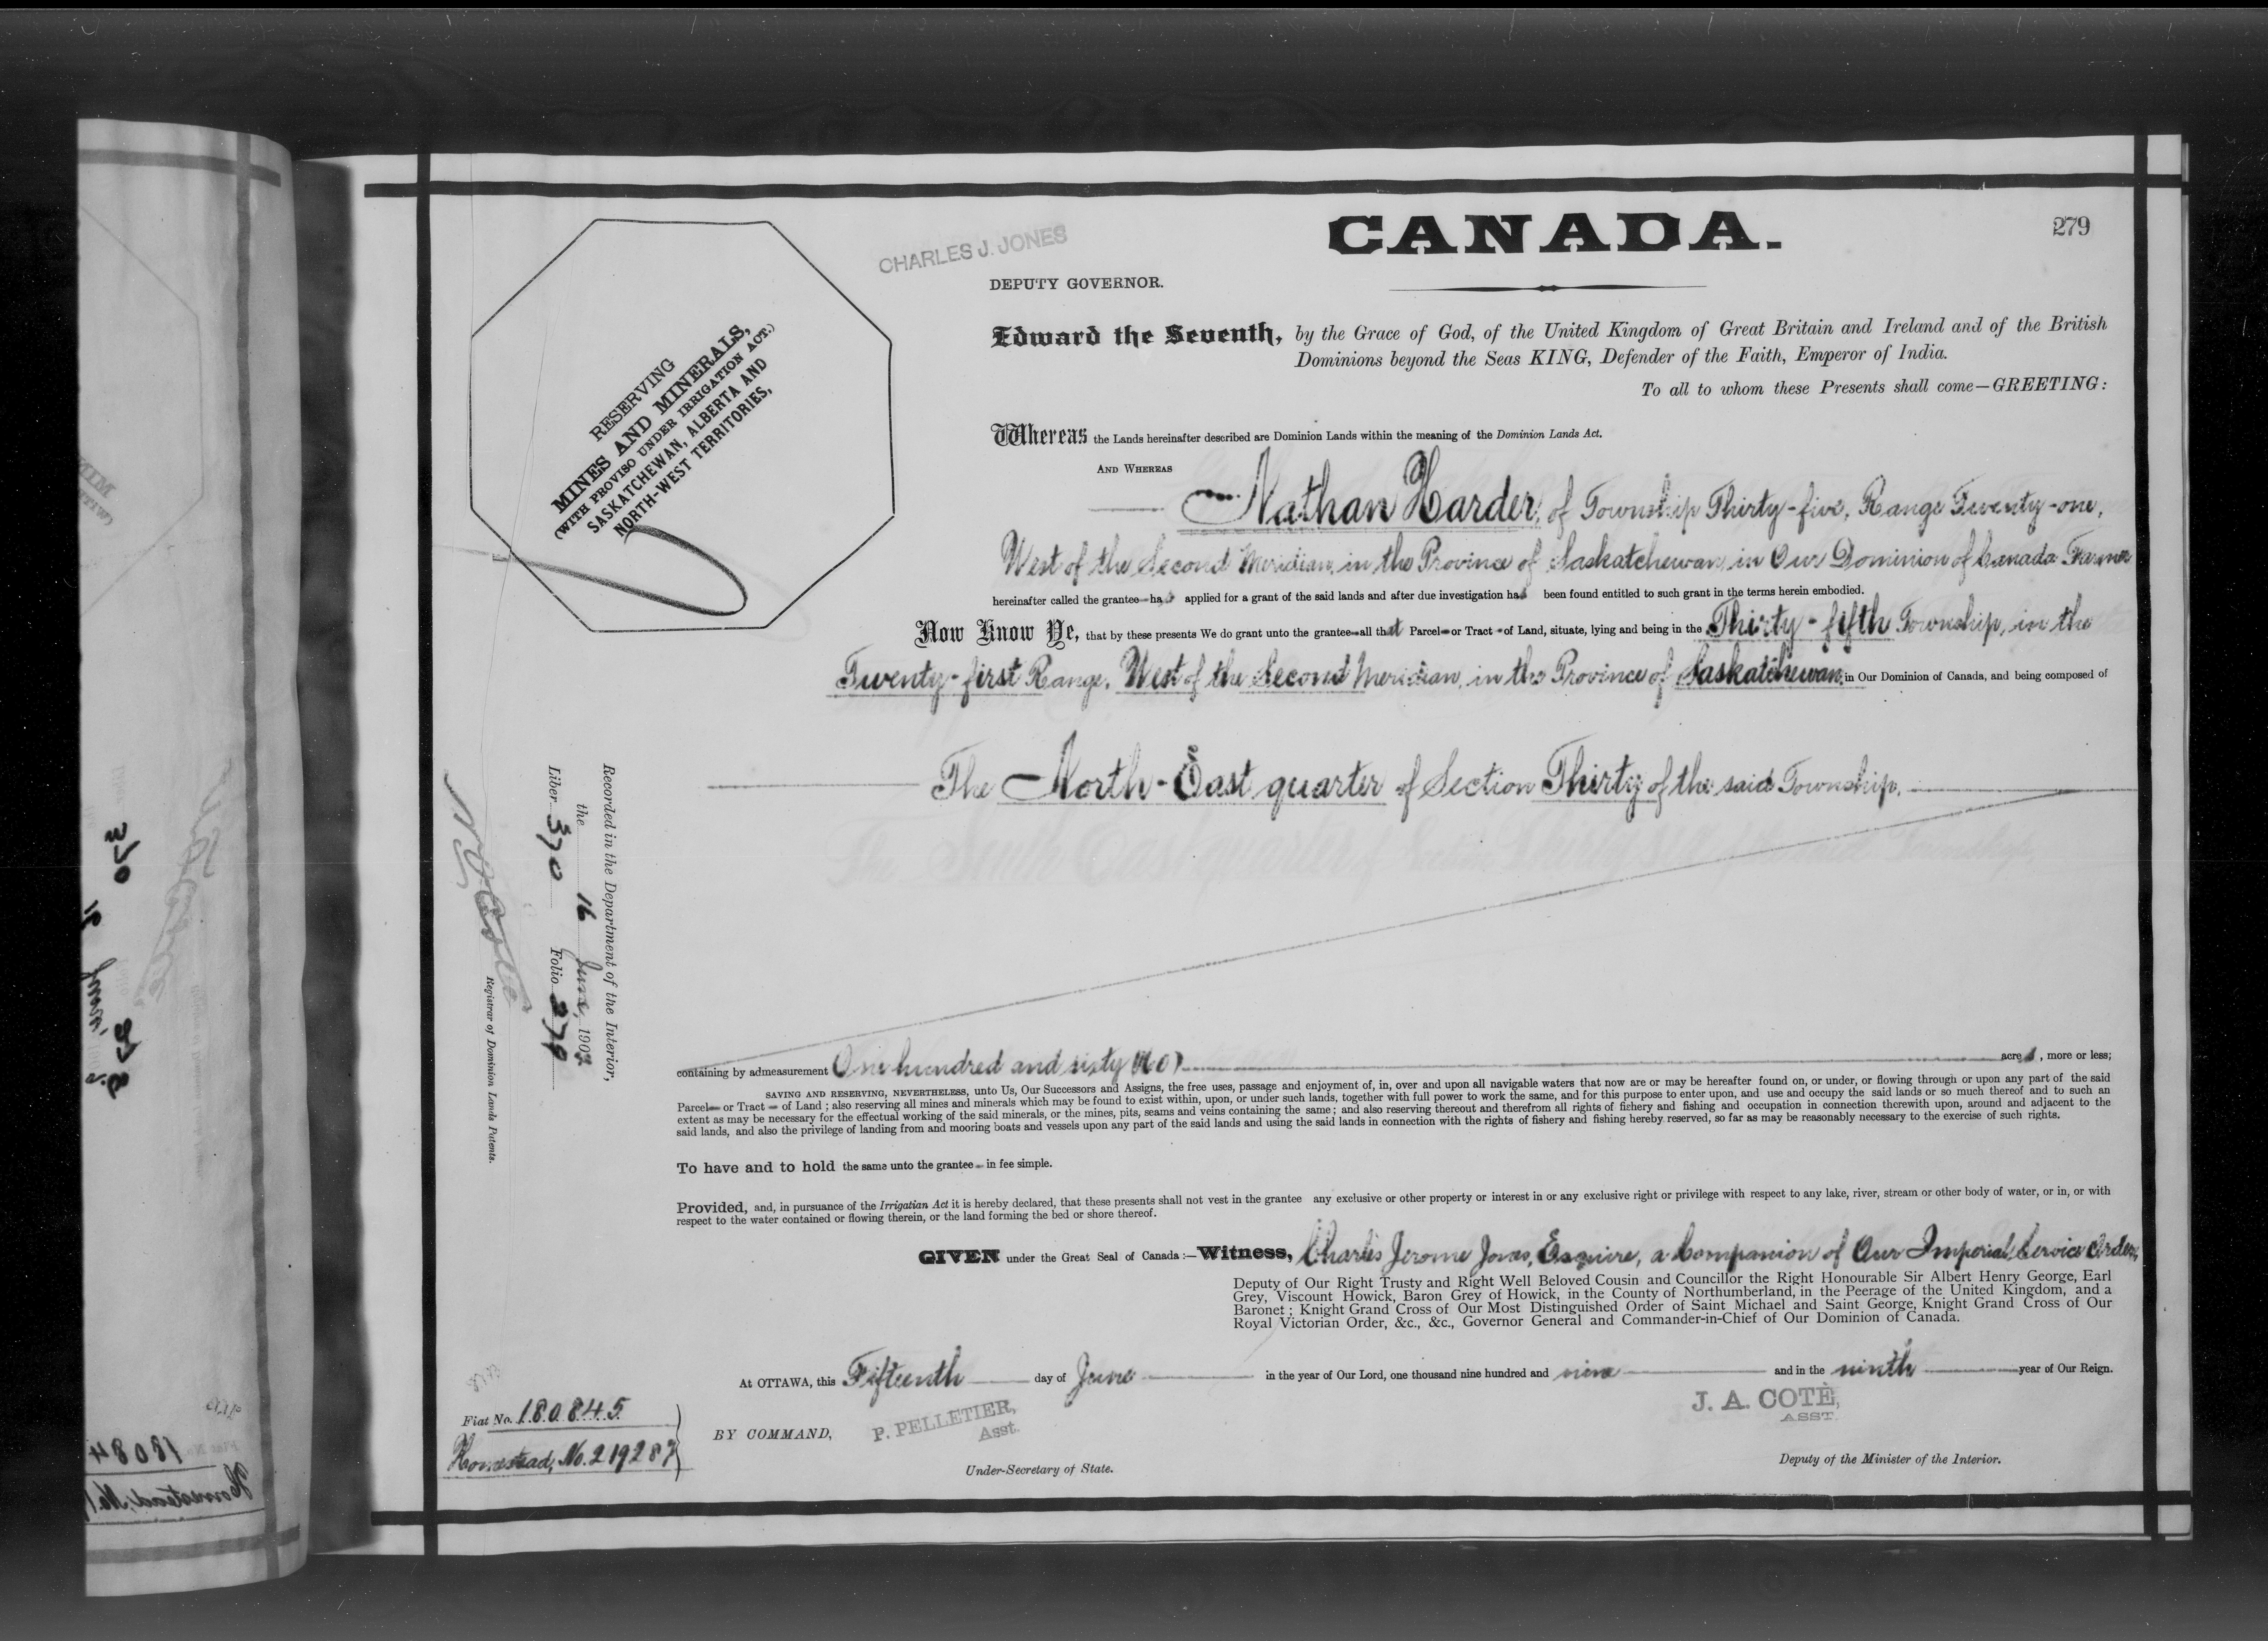 279
CANADA.
CHARLES J. JONES
DEPUTY GOVERNOR.
RESERVING
MINES AND MINERALS,
(WITH PROVISO UNDER IRRIGATION ACT.)
SASKATCHEWAN, ALBERTA AND
NORTH-WEST TERRITORIES,
Edward the Seventh, by the Grace of God, of the United Kingdom of Great Britain and Ireland and of the British
Dominions beyond the Seas KING, Defender of the Faith, Emperor of India.
To all to whom these Presents shall come—GREETING:
Whereas the Lands hereinafter described are Dominion Lands within the meaning of the Dominion Lands Act.
AND WHEREAS
Nathan Harder, of Township Thirty-five, Range Twenty-one,
West of the Second Meridian, in the Province of Saskatchewan, in Our Dominion of Canada Farmer
hereinafter called the grantee has applied for a grant of the said lands and after due investigation has been found entitled to such grant in the terms herein embodied.
Now Know Ye, that by these presents We do grant unto the grantee all that Parcel or Tract of Land, situate, lying and being in the Thirty-fifth Township, in the
Twenty-first Range, West of the Second Meridian, in the Province of Saskatchewan, in Our Dominion of Canada, and being composed of
The North-East quarter of Section Thirty of the said Township.
containing by admeasurement One hundred and sixty (160) acres, more or less;
SAVING AND RESERVING, NEVERTHELESS, unto Us, Our Successors and Assigns, the free uses, passage and enjoyment of, in, over and upon all navigable waters that now are or may be hereafter found on, or under, or flowing through or upon any part of the said
Parcel or Tract of Land; also reserving all mines and minerals which may be found to exist within, upon, or under such lands, together with full power to work the same, and for this purpose to enter upon, and use and occupy the said lands or so much thereof and to such an
extent as may be necessary for the effectual working of the said minerals, or the mines, pits, seams and veins containing the same; and also reserving thereout and therefrom all rights of fishery and fishing and occupation in connection therewith upon, around and adjacent to the
said lands, and also the privilege of landing from and mooring boats and vessels upon any part of the said lands and using the said lands in connection with the rights of fishery and fishing hereby reserved, so far as may be reasonably necessary to the exercise of such rights.
To have and to hold the same unto the grantee in fee simple.
Provided, and, in pursuance of the Irrigatian Act it is hereby declared, that these presents shall not vest in the grantee any exclusive or other property or interest in or any exclusive right or privilege with respect to any lake, river, stream or other body of water, or in, or with
respect to the water contained or flowing therein, or the land forming the bed or shore thereof.
GIVEN under the Great Seal of Canada:—Witness, Charles Jerome Jones, Esquire, a Companion of Our Imperial Service Order,
Deputy of Our Right Trusty and Right Well Beloved Cousin and Councillor the Right Honourable Sir Albert Henry George, Earl
Grey, Viscount Howick, Baron Grey of Howick, in the County of Northumberland, in the Peerage of the United Kingdom, and a
Baronet; Knight Grand Cross of Our Most Distinguished Order of Saint Michael and Saint George, Knight Grand Cross of Our
Royal Victorian Order, &c., &c., Governor General and Commander-in-Chief of Our Dominion of Canada.
At OTTAWA, this Fifteenth day of June in the year of Our Lord, one thousand nine hundred and nine and in the ninth year of Our Reign.
BY COMMAND,
P. PELLETIER,
Asst.
Under-Secretary of State.
J. A. COTÉ,
ASST.
Deputy of the Minister of the Interior.
Fiat No. 180845
Homestead, No. 219287
Recorded in the Department of the Interior,
the 16 June, 1909
Liber 370 Folio 279
Registrar of Dominion Lands Patents.